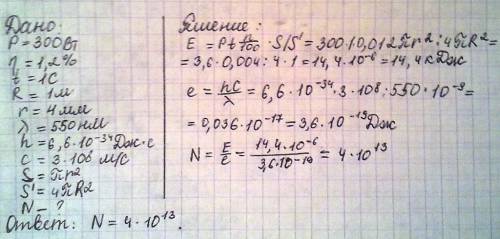 Дано:
P = 300 Вт
η = 1,2%
t = 1 С
R = 1 м
r = 4 мм
λ = 550 нм
h = 6,6·10⁻³⁴ Дж·с
c = 3·10⁸ м/с
S = Пr²
S' = 4ПR²
N – ?
Решение:
E = Pt η/100 · S/S' = 300·1·0,012Пr² : 4ПR² =
= 3,6·0,004 : 4·1 = 14,4·10⁻⁶ = 14,4 кДж
e = hC/λ = 6,6·10⁻³⁴·3·10⁸ : 550·10⁻⁹ =
= 0,036·10⁻¹⁷ = 3,6·10⁻¹⁹ Дж
N = E/e = 14,4·10⁻⁶/3,6·10⁻¹⁹ = 4·10¹³
Ответ: N = 4·10¹³.